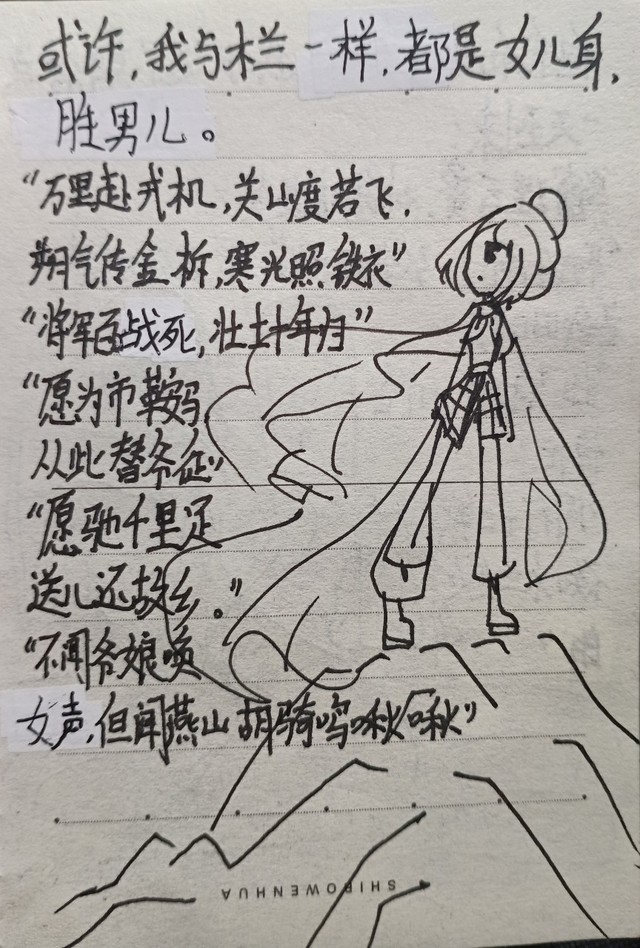 或许,我与木兰一样,都是女儿身,
胜男儿。
“万里赴戎机,关山度若飞.
朔气传金柝,寒光照铁衣”
“将军百战死,壮士十年归”
“愿为市鞍马
从此替爷征”
“愿驰千里足
送儿还故乡。”
“不闻爷娘唤
女声,但闻燕山胡骑鸣啾啾”
SHIBOWENHUA